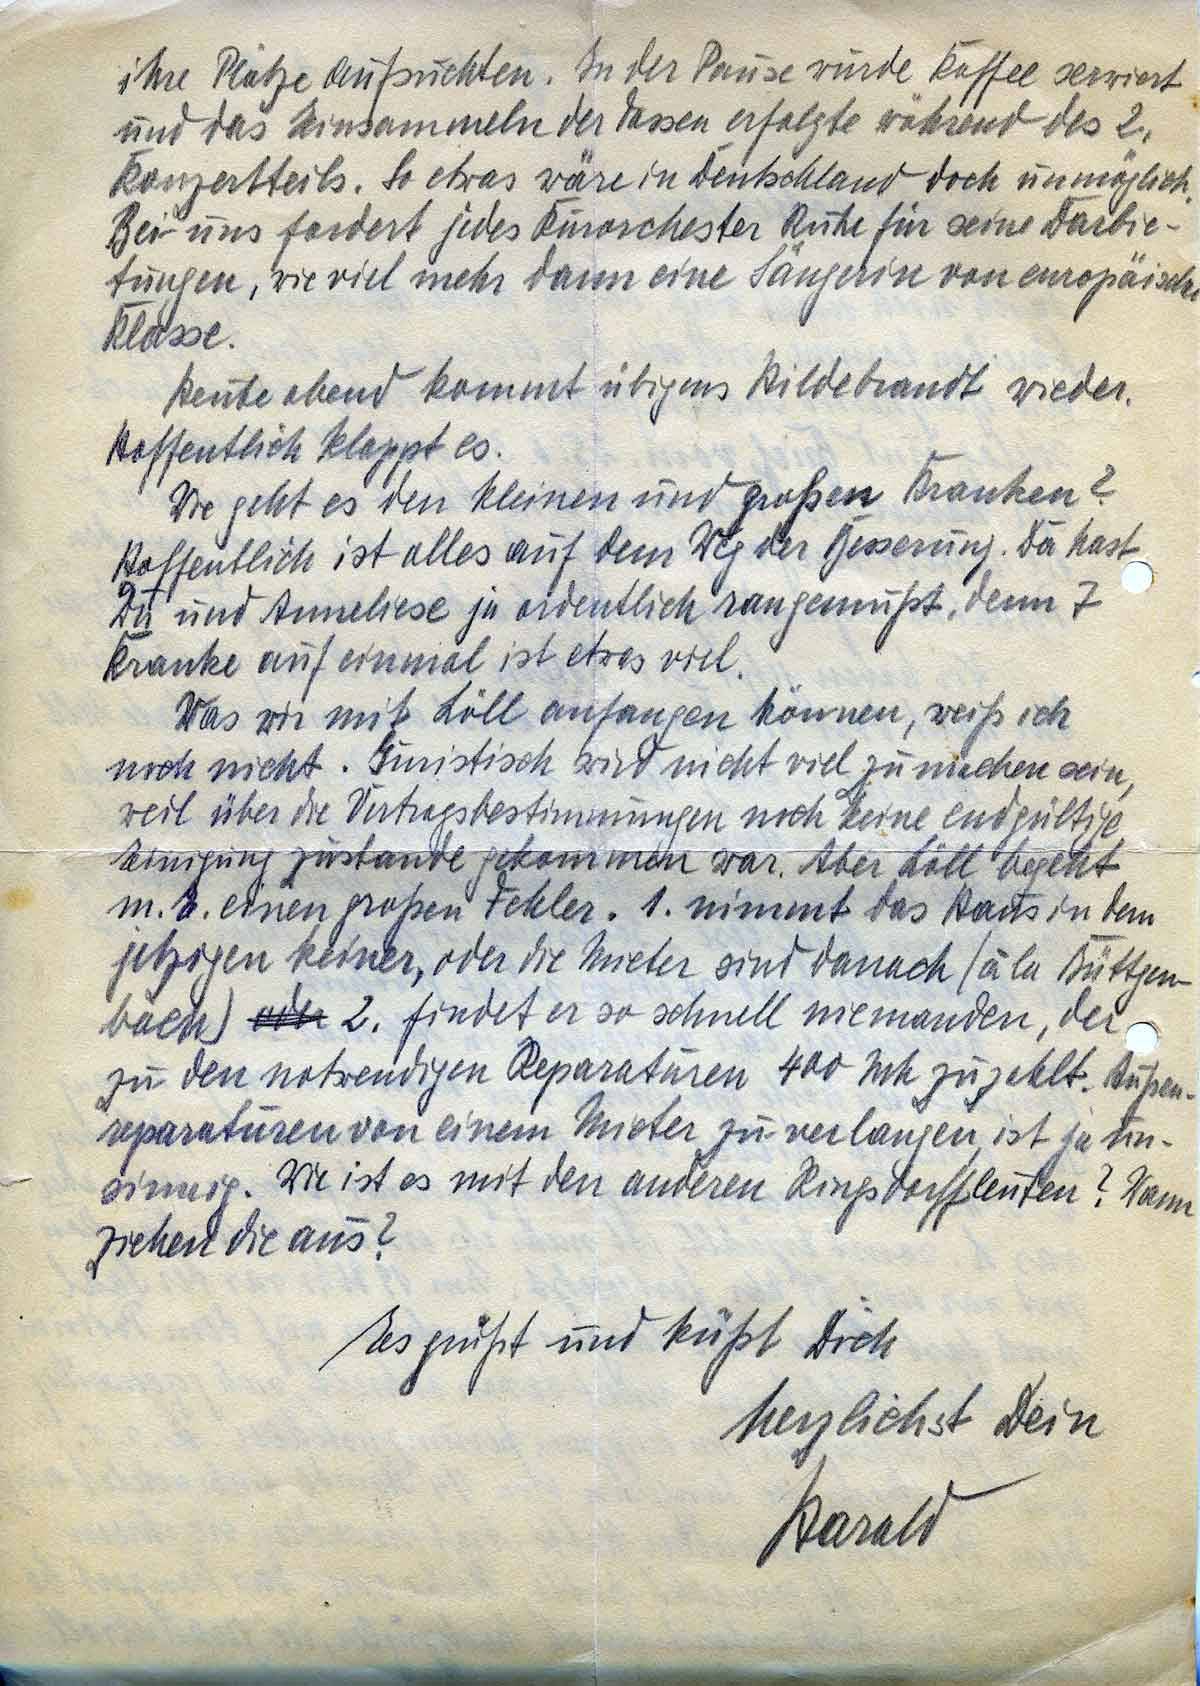 ihre Plätze aufsuchten. In der Pause wurde Kaffee serviert
und das Einsammeln der Tassen erfolgte während des 2.
Konzertteils. So etwas wäre in Deutschland doch unmöglich.
Bei uns fordert jedes Kurorchester Ruhe für seine Darbie-
tungen, wie viel mehr dann eine Sängerin von europäischer
Klasse.
Heute abend kommt übigens Hildebrandt wieder.
Hoffentlich klappt es.
Wie geht es den kleinen und großen Kranken?
Hoffentlich ist alles auf dem Weg der Besserung. Da hast
Du und Anneliese ja ordentlich rangemußt, denn 7
Kranke auf einmal ist etwas viel.
Was wir mit Löll anfangen können, weiß ich
noch nicht. Juristisch wird nicht viel zu machen sein,
weil über die Vertragsbestimmungen noch keine endgültige
Einigung zustande gekommen war. Aber Löll begeht
m. E. einen großen Fehler. 1. nimmt das Haus in dem
jetzigen keiner, oder die Mieter sind danach (à la Büttgen-
bach) oder 2. findet er so schnell niemanden, der
zu den notwendigen Reparaturen 400 Mk zuzahlt. Außen-
reparaturen von einem Mieter zu verlangen, ist ja un-
sinnig. Wie ist es mit den anderen Ringsdorffleuten? Wann
ziehen die aus?
Es grüßt und küßt Dich
herzlichst Dein
Harald